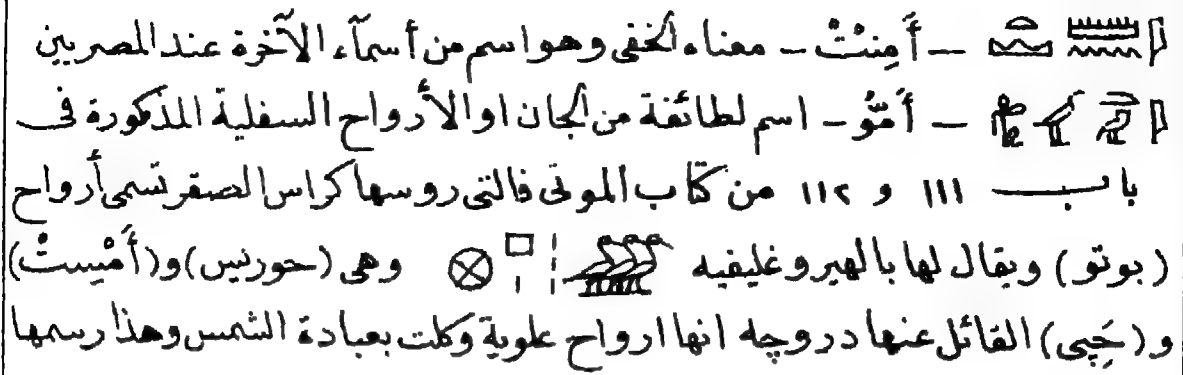 – أَمِنتْ – معناه الخفى وهو اسم من أسمآء الآخرة عند المصريين
– أَمُّو – اسم لطائفة من الجان او الأرواح السفلية المذكورة فى
باب ١١١ و ١١٢ من كتاب الموتى فالتى روسها كراس الصقر تسمى أرواح
(بوتو) ويقال لها بالهيروغليفيه وهى (حوريس) و(أَمْيِستْ)
و (حَپِى) القائل عنها دروچه انها ارواح علوية وكلت بعبادة الشمس وهذا رسمها